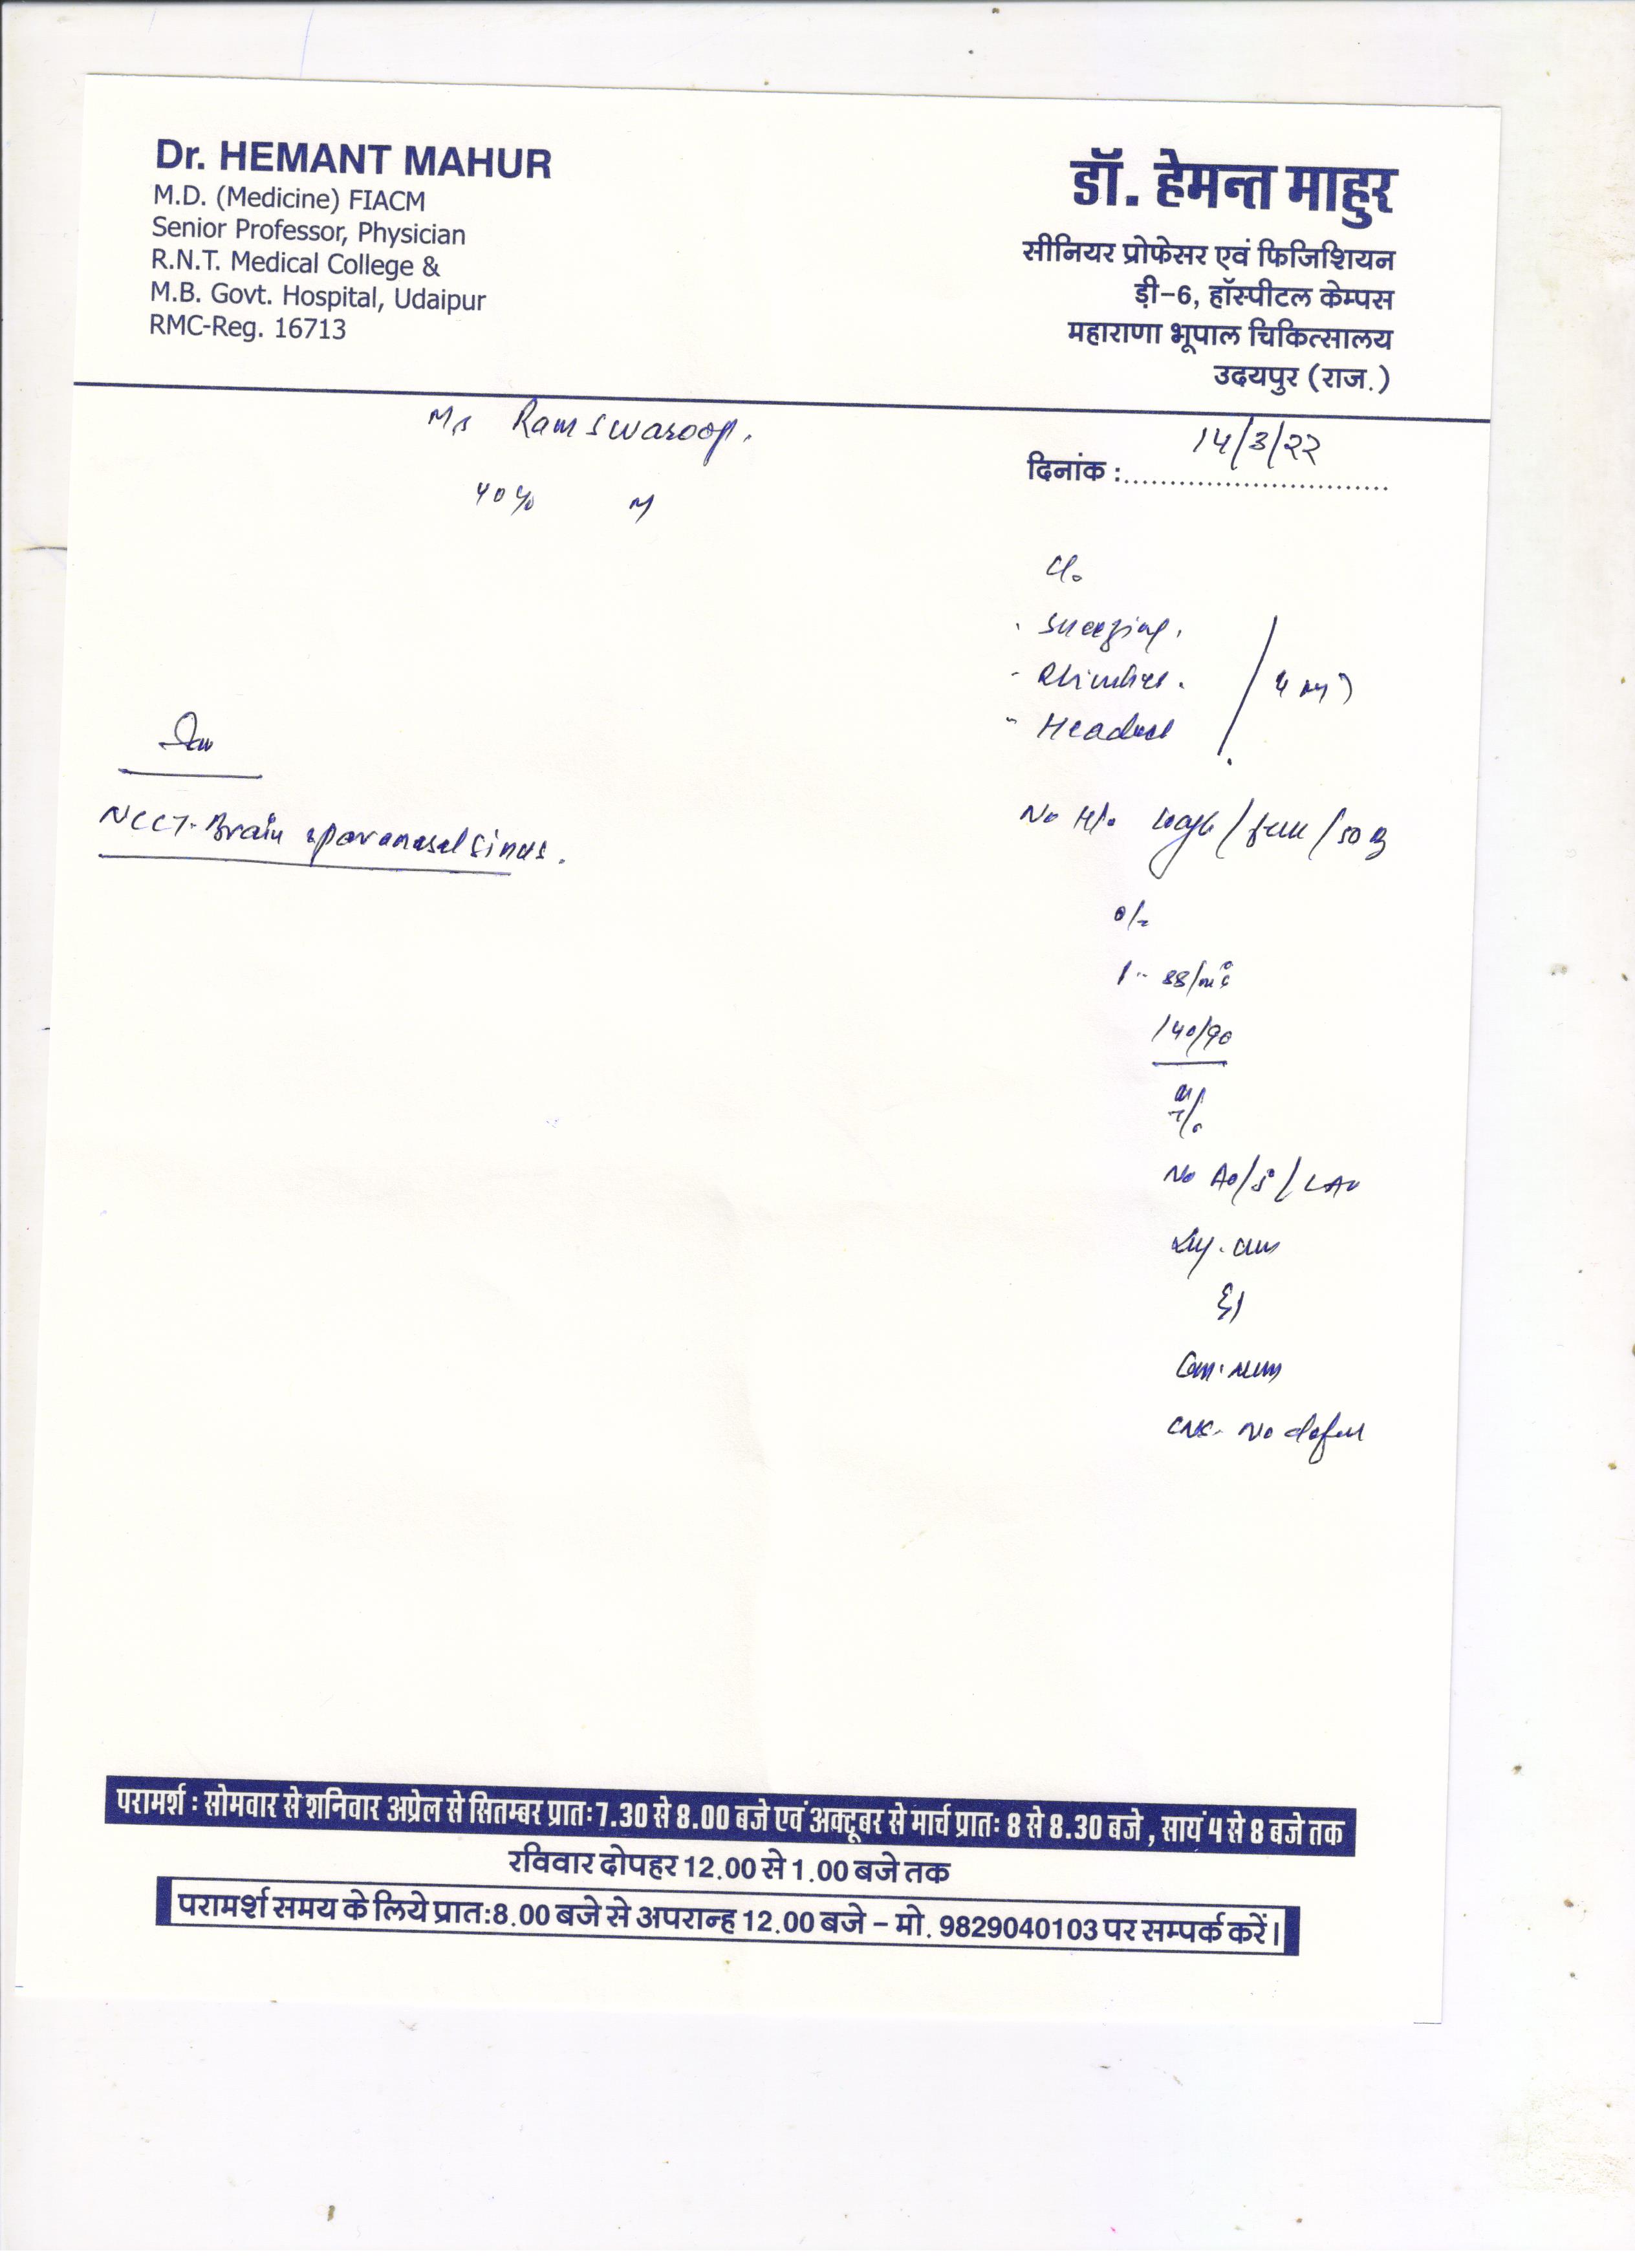 Dr. HEMANT MAHUR
M.D. (Medicine) FIACM
Senior Professor, Physician
R.N.T. Medical College &
M.B. Govt. Hospital, Udaipur
RMC-Reg. 16713
डॉ. हेमन्त माहुर
सीनियर प्रोफेसर एवं फिजिशियन
ड़ी-6, हॉस्पीटल केम्पस
महाराणा भूपाल चिकित्सालय
उदयपुर (राज.)
Mr Ram Swaroop.
40 M
दिनांक : 14/3/22
C/o
- Sneezing.
-
- Headache
NCCT-Brain & paranasal sinus.
No H/o / / SOB
O/E
88/min
140/90
No
CNS- No deficit
परामर्श : सोमवार से शनिवार अप्रेल से सितम्बर प्रातः 7.30 से 8.00 बजे एवं अक्टूबर से मार्च प्रातः 8 से 8.30 बजे , सायं 4 से 8 बजे तक
रविवार दोपहर 12.00 से 1.00 बजे तक
परामर्श समय के लिये प्रात:8.00 बजे से अपरान्ह 12.00 बजे – मो. 9829040103 पर सम्पर्क करें।